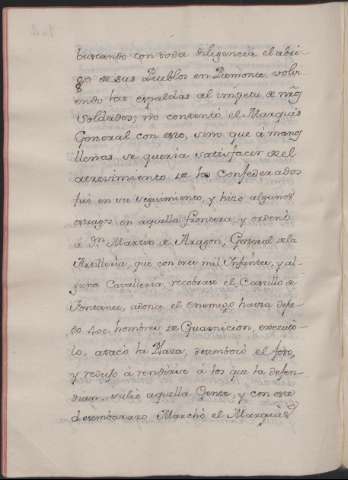 buscando con toda diligencia el abri-
go de sus Pueblos en Piamonte, volvi-
endo las espaldas al impetu de nrõs
Soldados; no contento el Marques
General con esto, sino que a manos
llenas, se queria satisfacer de el
atrevimiento de los Confederados
fue en su seguimiento, y hizo algunos
estragos en aquella frontera, y ordenó
á Dn. Martin de Aragon, General de la
Artilleria, que con once mil Infantes, y al-
guna Cavalleria, recobrase el Castillo de
Fontanee, adonde el enemigo havia dexa-
do hombres de Guarnicion, executo-
lo, atacó la Plaza, desembocó el foso,
y reduxo á rendirse á los que la defen-
dian, salió aquella Gente, y con este
desembarazo Marchó el Marques